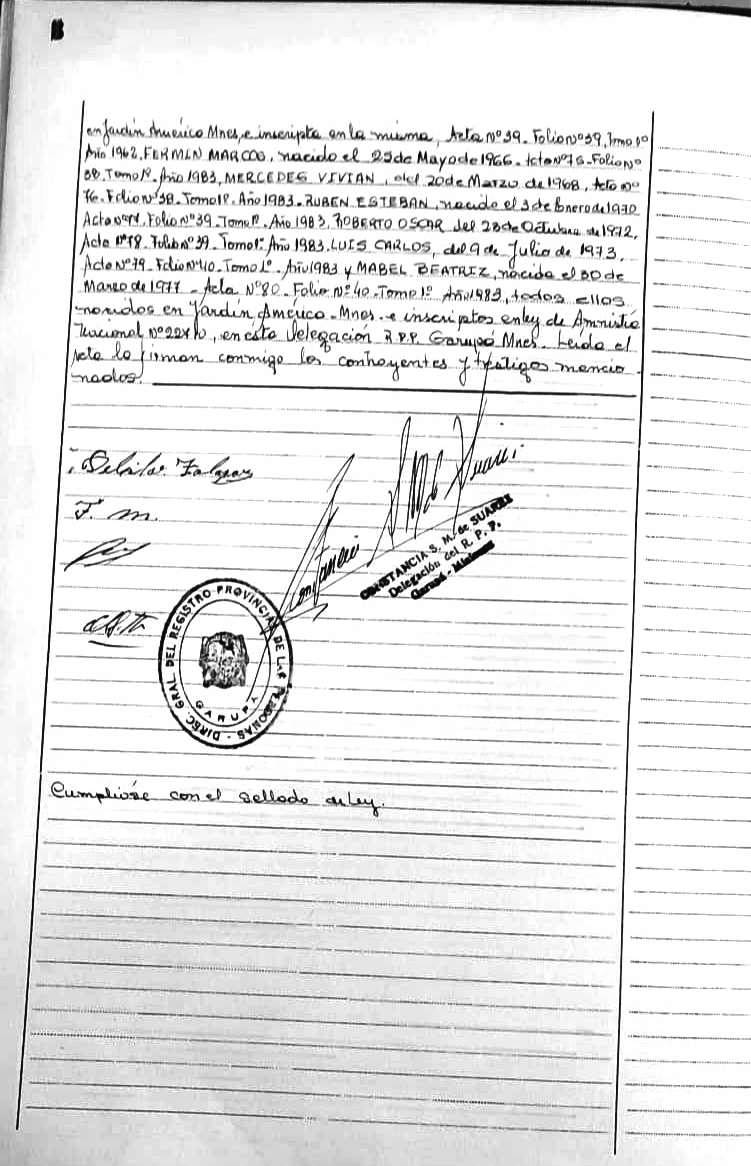 en Jardín América Mnes, e inscripta en la misma, Acta Nº 39. Folio nº 39, Tomo 1º
Año 1962, FERMIN MARCOS, nacido el 25 de Mayo de 1966. Acta Nº 75 - Folio Nº
38. Tomo 1º. Año 1983, MERCEDES VIVIAN, del 20 de Marzo de 1968, Acta nº
76. Folio nº 38. Tomo 1º. Año 1983 - RUBEN ESTEBAN, nacido el 3 de Enero de 1970
Acta nº 77. Folio nº 39 - Tomo 1º. Año 1983, ROBERTO OSCAR del 28 de Octubre de 1972,
Acta Nº 78. Folio Nº 39. Tomo 1º Año 1983. LUIS CARLOS, del 9 de Julio de 1973,
Acta Nº 79. Folio Nº 40. Tomo 1º. Año 1983 y MABEL BEATRIZ, nacida el 30 de
Marzo de 1977 - Acta Nº 80. Folio Nº 40 - Tomo 1º Año 1983, todos ellos
nacidos en Jardín América - Mnes. e inscriptos en ley de Amnistía
Nacional Nº, en esta Delegación R.P.P. Garupá Mnes. Leída el
Acta la firman conmigo los contrayentes y testigos mencio
nados.
F. M.
CONSTANCIA S. M. de SUAREZ
Delegación del R. P. P.
Garupá - Misiones
DIREC. GRAL. DEL REGISTRO PROVINCIAL DE LAS PERSONAS -
GARUPA
Cumplióse con el sellado de Ley.